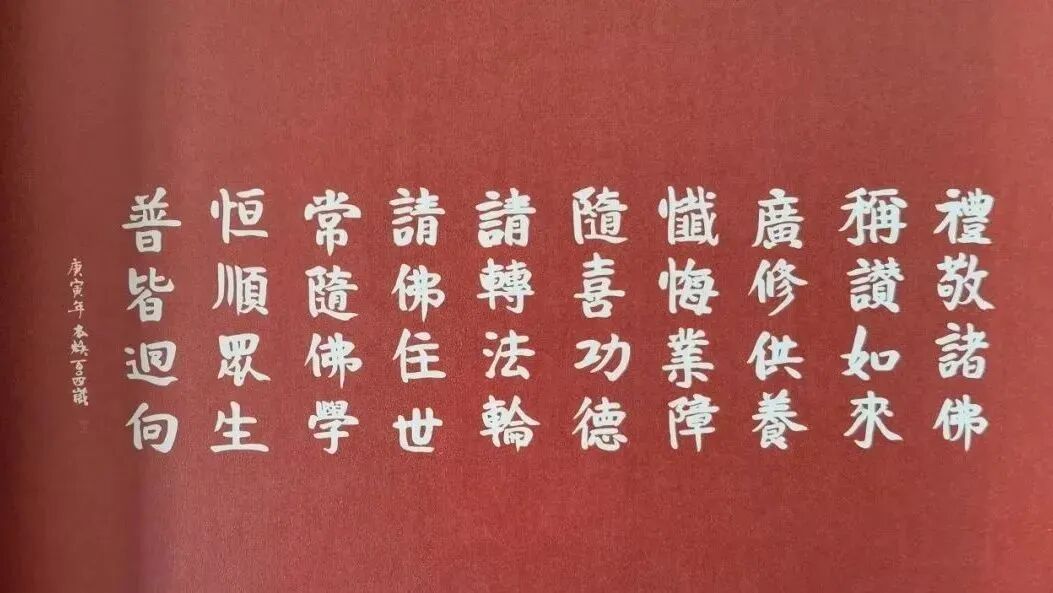 禮敬諸佛
稱讚如來
廣修供養
懺悔業障
隨喜功德
請轉法輪
請佛住世
常隨佛學
恒順眾生
普皆迴向
庚寅年 本煥 百四歲